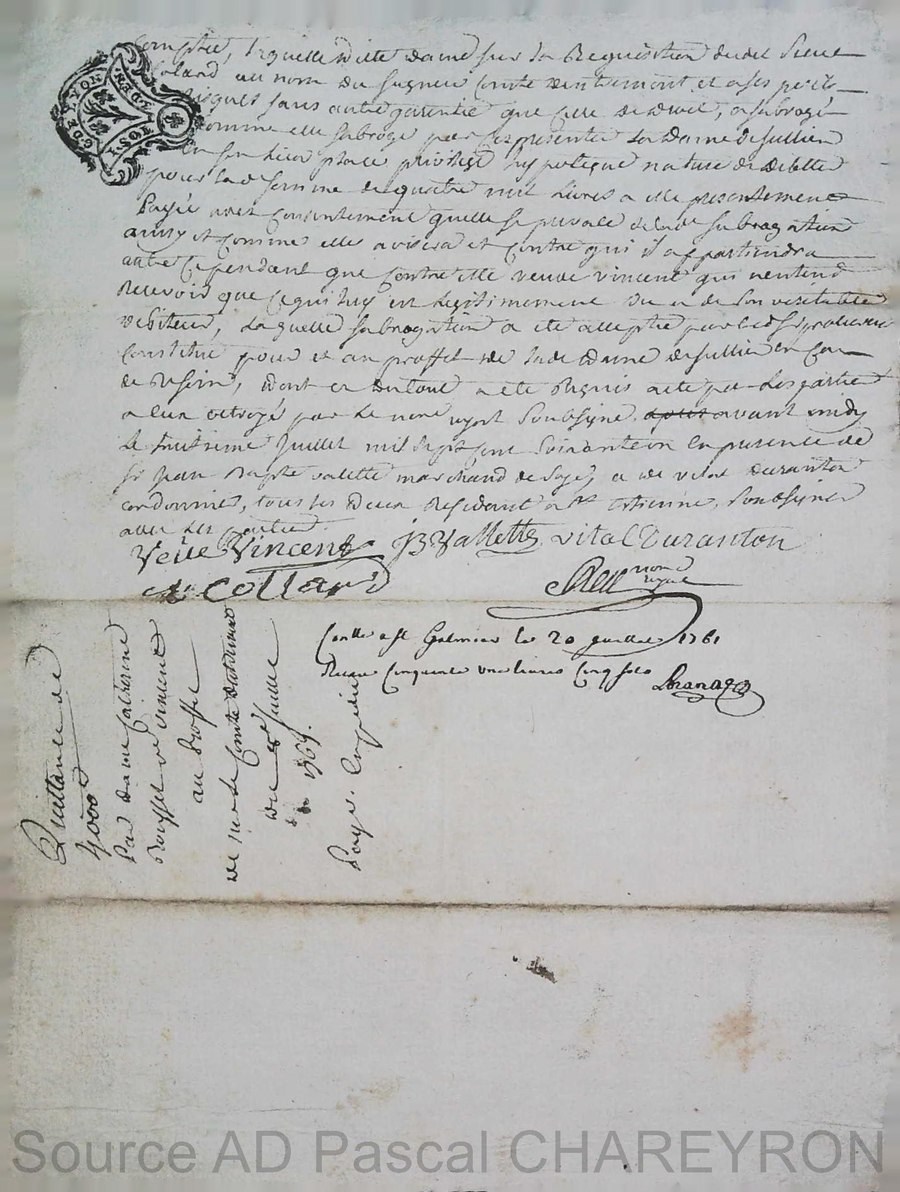 comptée, laquelle ditte dame sur la Requisition dudit sieur
Coland au nom du seigneur Comte Dentremont et a ses perils
risques sans autre garentie que celle de droit, a subrogé
comme elle subroge par ces presentes la dame de sullien
En son lieu place privilege hypoteque nature de debtte
pour lad. somme de quatre mil Livres a elle presentement
Payée avec Consentement quelle se prevale de lad. subrogation
ainsy et comme elle avisera et contre qui il appartiendra
autre Cependant que Contre elle veuve vincent qui nentend
Recevoir que Ce qui luy est legitimement du a de son veritable
debiteur, Laquelle subrogation a ete acceptée par led. sr
Constitué pour et au proffit de lad. dame de sullien
de Resein, dont et du tout a ete Requis acte par Les parties
a Eux octroyé par Le nore royal soubsigné, apres avant midy
Le huitieme Juillet mil sept cent Soixante un En presence de
sr Jean Bapte valette marchand de soye, et de vital duranton
cordonnier, tous les deux Residant a st Etienne, soubsignes
avec Les parties.
Veüe Vincent JB Vallette vital Duranton
Collard
nore royal
Conllé a st Galmier le 20 Juillet 1761
Recu Cinquante une livres Cinq sols
Quittance de
4000
Par dame Catherine
Rousset ve vincent
au Proffit
de mr le Comte dantremont
du 8e Juillet
1761.
Source AD Pascal CHAREYRON